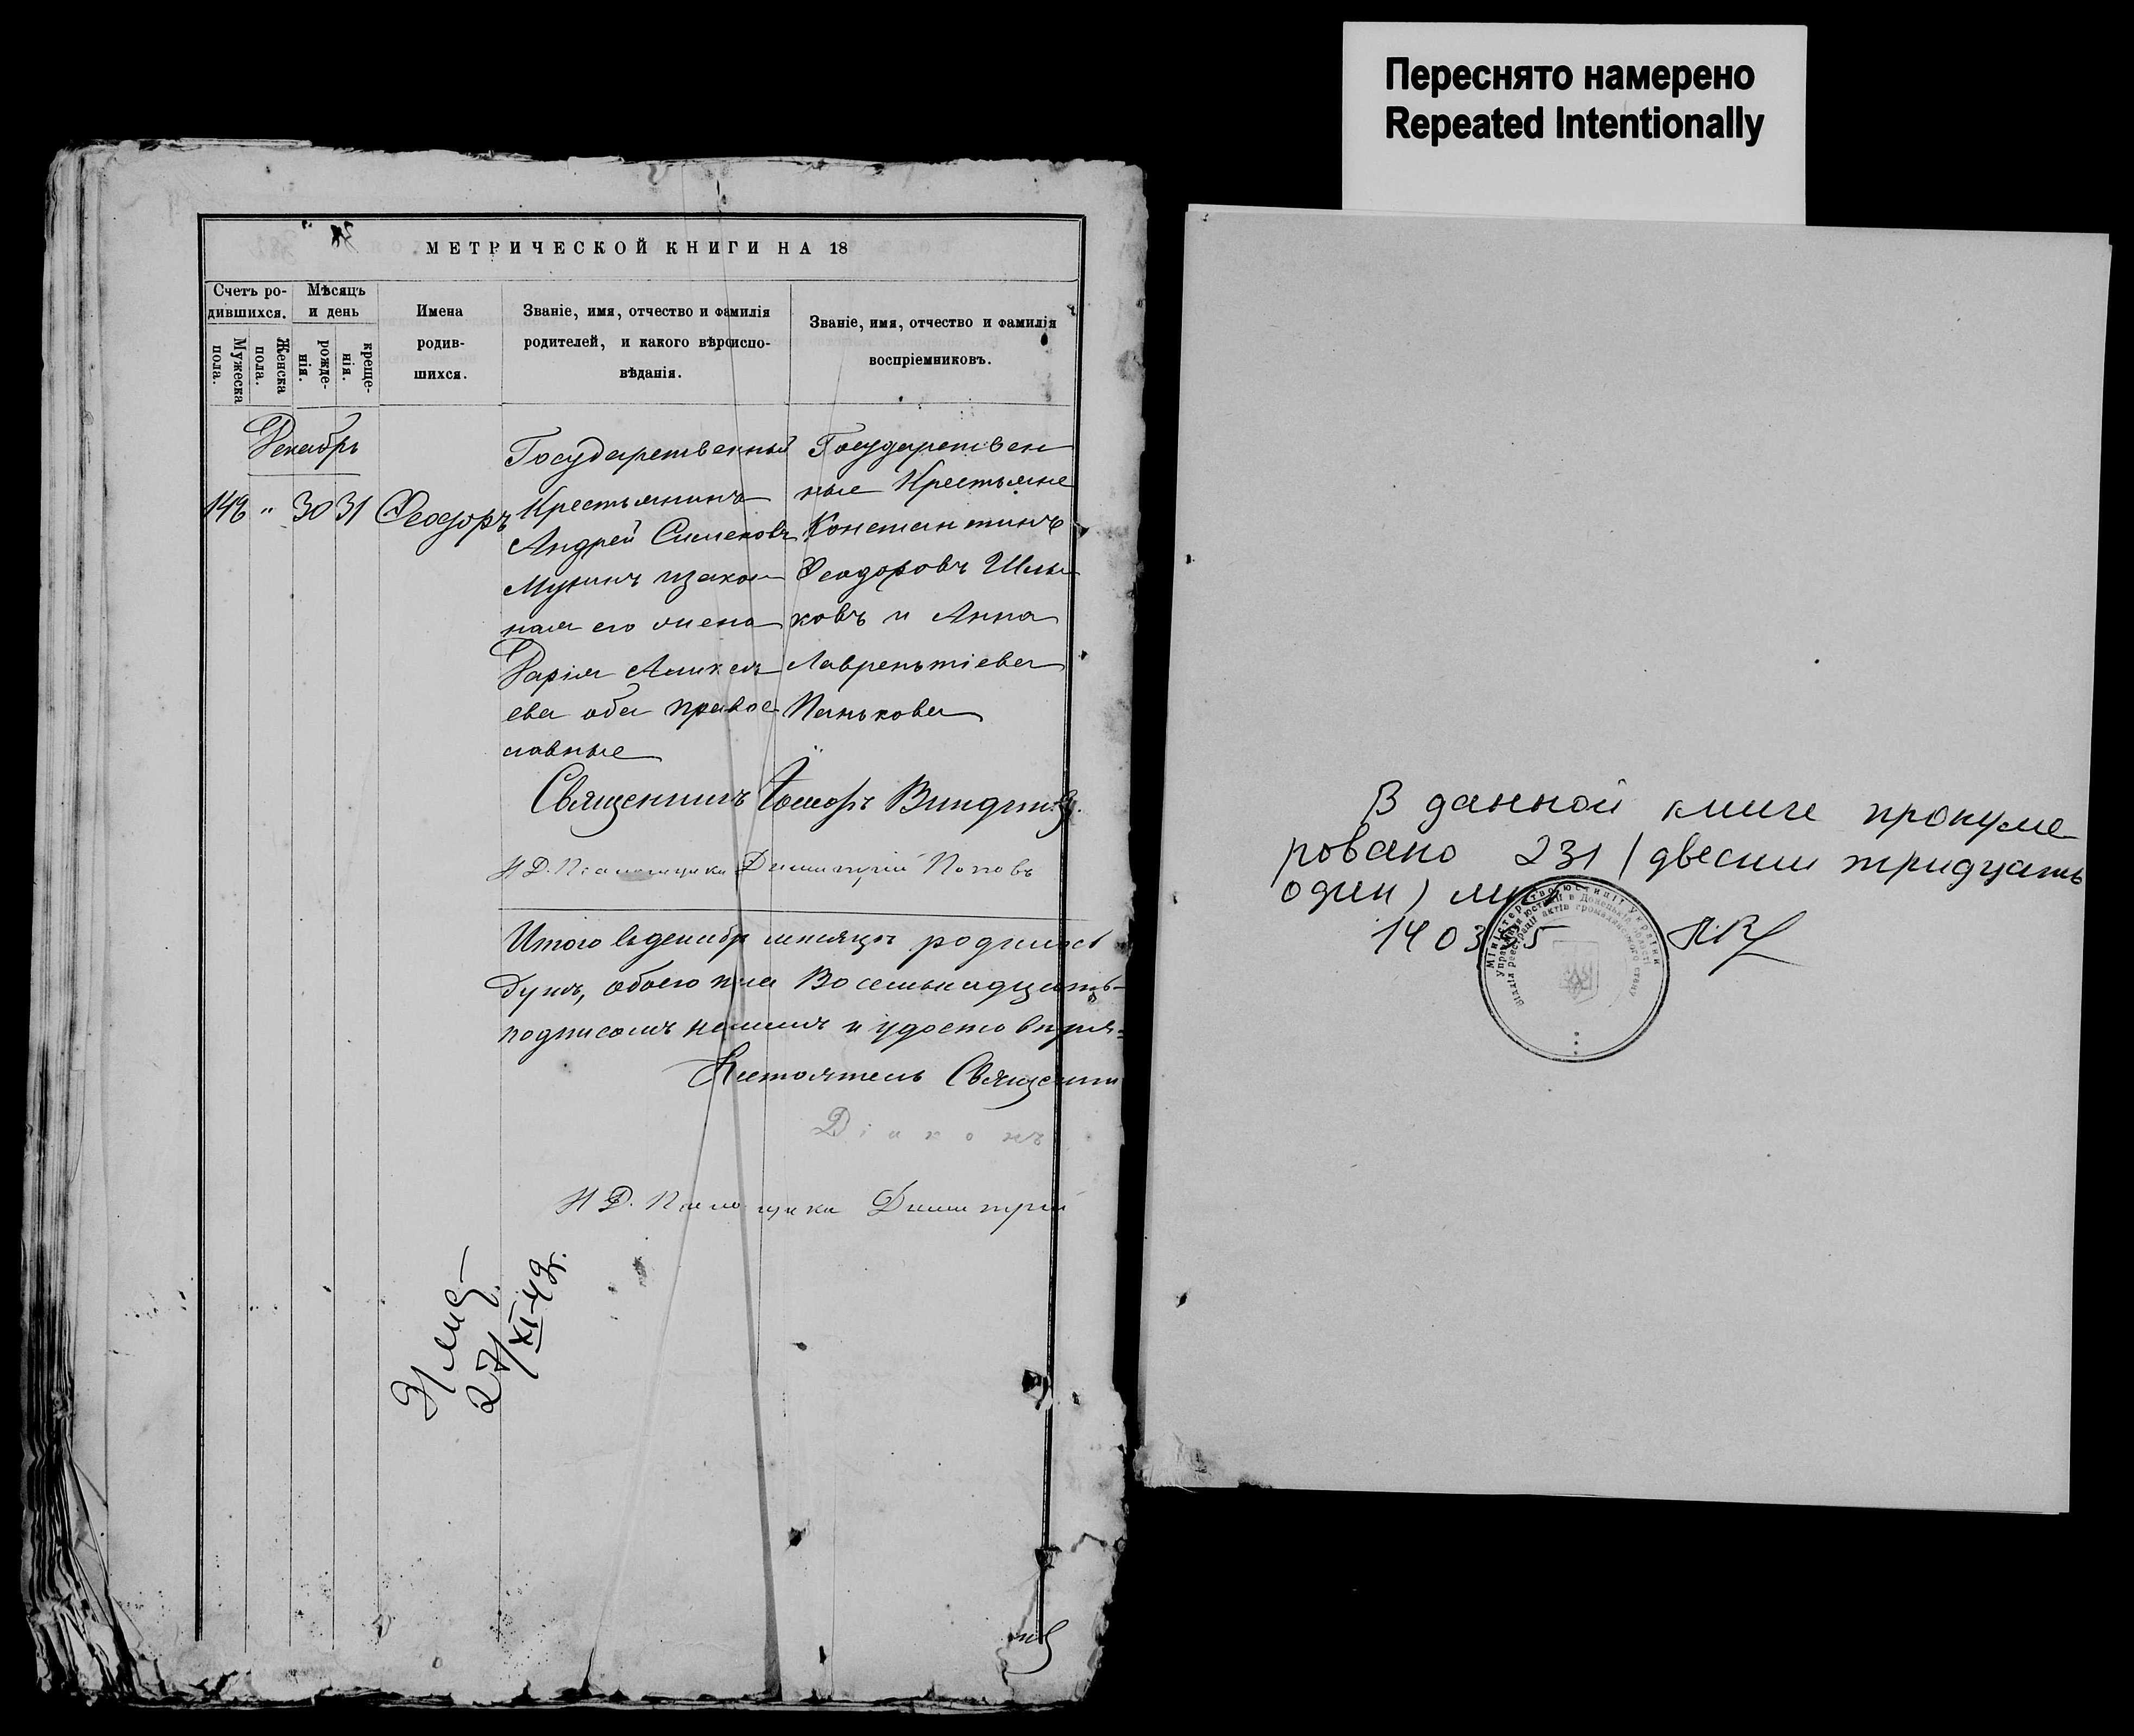 Переснято намерено
Repeated Intentionally
МЕТРИЧЕСКОЙ КНИГИ НА 18
Счетъ ро-
дившихся.
Мужеска
пола.
Женска
пола.
Мѣсяцъ
и день
рожде-
нія.
креще-
нія.
Имена
родив-
шихся.
Званіе, имя, отчество и фамилія
родителей, и какого вѣроиспо-
вѣданія.
Званіе, имя, отчество и фамилія
воспріемниковъ.
Декабрь
30 31 Феодоръ
Государственный
Крестьянинъ
Андрей Симеоновъ
изакон
ная его жена
Дарія Алексѣ
ева оба правос
лавные
Государствен
ные Крестьяне
Константинъ
Феодоровъ
ковъ и Анна
Лаврентіева
Панькова
Священникъ
И Д. Псаломщика Димитрій Поповъ
Итого въ декабрѣ мѣсяцѣ родилось
душъ, обоего пола Восемьнадцать
подписомъ нашимъ и удостовѣряем
Настоятель Священни
Діаконъ
И Д. Псаломщика Димитрій
27/XI-49г.
В данной книге прокуме
ровано 231 (двести тридцать
один) лис
14 03
Міністерство юстиції України
Управління юстиції в Донецькій області
Відділ реєстрації актів громадянського стану